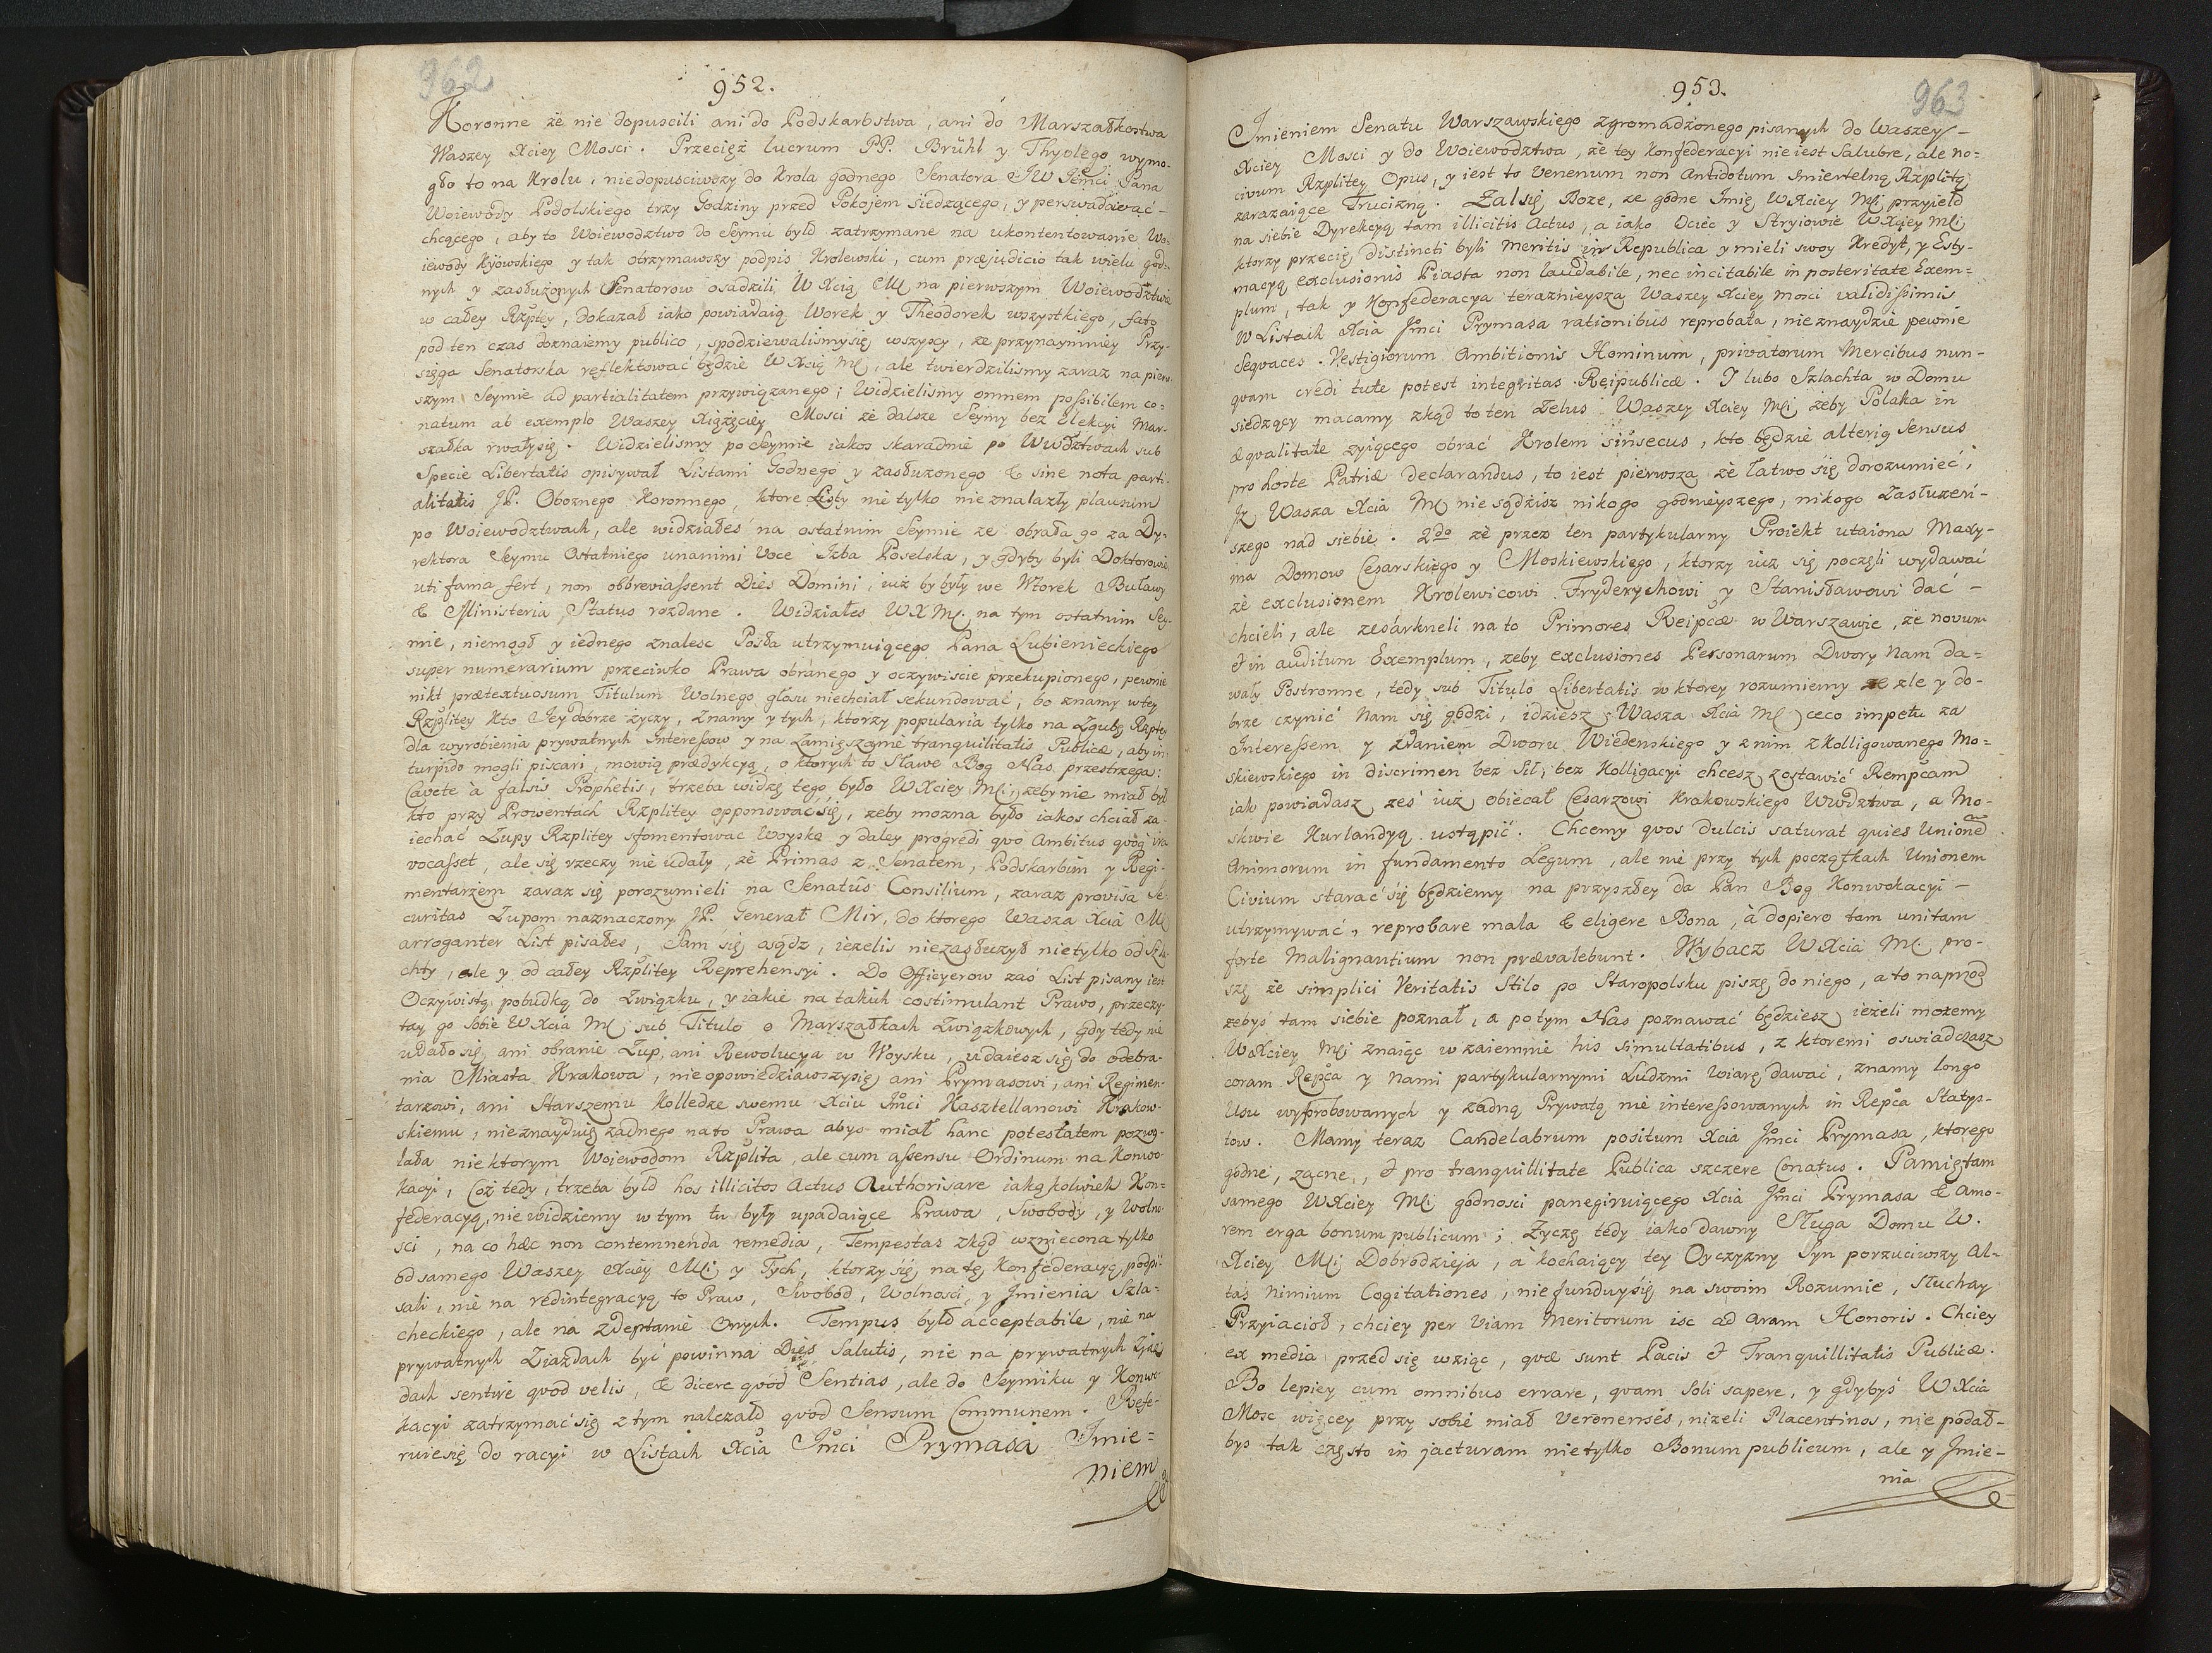 962
952.
Koronne że nie dopuscili ani do Podskarbstwa, ani do Marszałkostwa
Waszey Xciey Mosci. Przecięż lucrum PP. Brühl y Thyolego wymo-
gło to na Krolu, niedopusciwszy do Krola godnego Senatora JW Jemci Pana
Woiewody Podolskiego trzy Godziny przed Pokojem siedzącego, y perswadować-
chcącego, aby to Woiewodztwo do Seymu było zatrzymane na ukontentowanie Wo-
iewody Kijowskiego y tak otrzymawszy podpis Krolewski, cum præjudicio tak wielu god-
nych y zasłużonych Senatorow osadzili W Xcią Mć na pierwszym Woiewodztwie
w całey Rzptey, dokazał iako powiadaią Worek y Theodorek wszystkiego, fato
pod ten czas doznaiemy publico, spodziewalismysię wszyscy, że przynaymniey Przy-
sięga Senatorska reflektować będzie W Xcię Mć, ale twierdzilismy zaraz na pierw-
szym Seymie ad partialitatem przywiązanego; Widzielismy omnem possibilem co-
natum ab exemplo Waszey Xiążęciey Mosci że dalsze Seymy bez Elekcyi Mar-
szałka rwałysię. Widzielismy po Seymie iakoś skaradnie po Wwdztwach sub
Specie Libertatis opisywał Listami Godnego y zasłużonego & sine nota parti-
alitatis JP. Oboznego Koronnego, ktore Listy nie tylko nie znalazły plausum
po Woiewodztwach, ale widziałeś na ostatnim Seymie że obrała go za Dy-
rektora Seymu Ostatniego unanimi Voce Izba Poselska, y gdyby byli Doktorowie
uti fama fert, non obbreviassent Dies Domini, iuż by były we Wtorek Buławy
& Ministeria Status rozdane. Widziałes WX Mć. na tym ostatnim Sey-
mie, niemogł y iednego znalesc Posła utrzymuiącego Pana Lubienieckiego
super numerarium przeciwko Prawa obranego y oczywiscie przekupionego, pewnie
nikt prætextuosum Titulum Wolnego głosu niechciał sekundować, bo znamy w tey
Rzplitey kto Jey dobrze życzy, znamy y tych, ktorzy popularia tylko na Zgubę Rzptey
dla wyrobienia prywatnych Interessow y na Zamięszanie tranquilitatis Publicæ, aby in
turpido mogli piscari, mowią prædykcyą, o ktorych to Sławe Bog Nas przestrzega:
Cavete a falsis Prophetis, trzeba widzę tego było WXciey Mći, żeby nie miał był
kto przy Prowentach Rzplitey opponować się, żeby można było iakoś chciał za-
iechać Żupy Rzplitey sfomentować Woyska y daley progredi qvo Ambitus qvoq ira
vocasset, ale się rzeczy nie udały, że Primas z Senatem, Podskarbim y Regi-
mentarzem zaraz się porozumieli na Senatus Consilium, zaraz provisa Se-
curitas Żupom naznaczony JP. Generał Mir, do ktorego Wasza Xcia Mć
arroganter List pisałeś, Sam się osądz, ieżelis niezasłużył nietylko od Szla-
chty, ale y od całey Rzplitey Reprehensyi. Do Officyerow zaś List pisany iest
Oczywistą pobudką do Związku, y iakie na takich costimulant Prawo, przeczy-
tay go Sobie WXcia Mć sub Titulo o Marszałkach Związkowych, gdy tedy nie
udało się ani obranie Żup, ani Rewolucya w Woysku, udaiesz się do odebra-
nia Miasta Krakowa, nie opowiedziawszysię ani Prymasowi, ani Regimen-
tarzowi, ani Starszemu Kolledze swemu Xciu Jmci Kasztellanowi Krakow-
skiemu, nieznayduię żadnego nato Prawa abyś miał hanc potestatem pozwo-
lała niektorym Wojewodom Rzplita, ale cum assensu Ordinum na Konwo-
kacyi, Coż tedy, trzeba było hos illicitos Actus Authorisare iakąkolwiek Kon-
federacyą, nie widziemy w tym tu były upadaiące Prawa, Swobody, y Wolno-
sci, na co hæc non contemnenda remedia, Tempestas zkąd wzniecona tylko
od samego Waszey Xciey Mći y Tych, ktorzy się na tę Konfederacyą podpi-
sali, nie na redintegracyą to Praw, Swobod, Wolnosci, y Jmienia Szla-
checkiego, ale na zdeptanie Onych. Tempus było acceptabile, nie na
prywatnych Ziazdach być powinna Dies Salutis, nie na prywatnych Ziaz-
dach sentire qvod velis, & dicere qvod Sentias, ale do Seymiku y Konwo-
kacyi zatrzymać się z tym nalezało qvod Sensum Communem. Refe-
ruiesię do racyi w Listach Xcia Jmci Prymasa Jmie-
niem
963
953.
Jmieniem Senatu Warszawskiego zgromadzonego pisanych do Waszey-
Xciey Mosci y do Woiewodztwa, że tey Konfederacyi nie iest Salubre, ale no-
civum Rzplitey Opus, y iest to Venenum non Antidotum smiertelną Rzplitą
zarazaiące Trucizną. Żal się Boże, ze godne Jmię WXciey Mći przyieło
na siebie Dyrekcyą tam illicitis Actus, a iako Ociec y Stryiowie WXciey Mći
ktorzy przecię distincti byli meritis in Republica y mieli swoy Kredyt, y Esty-
macyą exclusionis Piasta non laudabile, nec incitabile in posteritate Exem-
plum, tak y Konfederacya teraznieysza Waszey Xciey Mosci validissimis
W Listach Xcia Jmci Prymasa rationibus reprobata, nieznaydzie pewnie
Seqvaces. Vestigiorum Ambitionis Hominum, privatorum Mercibus nun-
qvam credi tute potest integritas Reipublicæ. I lubo Szlachta w Domu
siedzący macamy zkąd to ten Zelus Waszey Xciey Mći żeby Polaka in
æqvalitate zyiącego obrać Krolem sinsecus, kto będzie alterig Sensus
pro hoste Patriæ declarandus, to iest pierwsza, że łatwo się dorozumieć,
Iż Wasza Xcia Mć nie sądzisz nikogo godnieyszego, nikogo Zasłużeń-
szego nad siebie. 2do że przez ten partykularny Proiekt utaiona Maxy-
ma Domow Cesarskiego y Moskiewskiego, ktorzy iuz się poczęli wydawać
że exclusionem Krolewicowi Fryderychowi y Stanisławowi dać -
chcieli, ale zesarkneli na to Primores Reipcæ w Warszawie, że novum
& in auditum Exemplum, zeby exclusiones Personarum Dwory Nam da-
wały Postronne, tedy sub Titulo Libertatis w ktorey rozumiemy że zle y do-
brze czynić Nam się godzi, idziesz Wasza Xcia Mć cæco impetu za
Interessem y Zdaniem Dworu Wiedenskiego y z nim zkolligowanego Mo-
skiewskiego in discrimen bez Sił, bez Kolligacyi chcesz zostawić Rempcam
iak powiadasz ześ iuż obiecał Cesarzowi Krakowskiego Wwdztwa, a Mo-
skwie Kurlandyą ustąpić. Chcemy qvos dulcis saturat quies Unione
Animorum in fundamento Legum, ale nie przy tych początkach Unionem
Civium starać się będziemy na przyszłey da Pan Bog Konwokacyi -
utrzymywać, reprobare mala & eligere Bona, à dopiero tam unitam
forte Malignantium non prævalebunt. Wybacz WXcia Mć. pro-
szę że simplici Veritatis Stilo po Staropolsku piszę do niego, a to naprzod
zebyś tam siebie poznał, a potym Nas poznawać będziesz ieżeli możemy
WXciey Mći znaiąc wzaiemnie his simultatibus, z ktoremi oswiadczasz
coram Repca y Nami partykularnymi Ludzmi Wiarę dawać, znamy longo
Usu wyprobowanych y żadną Prywatą nie interessowanych in Repca Statys-
tow. Mamy teraz Candelabrum positum Xcia Jmci Prymasa, ktorego
godne, zacne, & pro tranquillitate Publica szczere Conatus. Pamiętam
samego WXciey Mći godnosci panegiruiącego Xcia Jmci Prymasa & Amo-
rem erga bonum publicum; Życzę tedy iako dawny Sługa Domu W.
Xciey Mći Dobrodzieja, à kochaiący tey Oyczyzny Syn porzuciwszy Al-
tas nimium Cogitationes, nie funduysię na swoim Rozumie, Słuchay
Przyiacioł, chciey per Viam Meritorum isc ad Aram Honoris. Chciey
ex media przed się wziąc, qvæ sunt Pacis & Tranquillitatis Publicæ.
Bo lepiey cum omnibus errare, qvam Soli sapere, y gdybyś WXcia
Mosc więcey przy sobie miał Veronenses, nizeli Placentinos, nie podał-
byś tak często in jacturam nietylko Bonum publicum, ale y Jmie-
nia